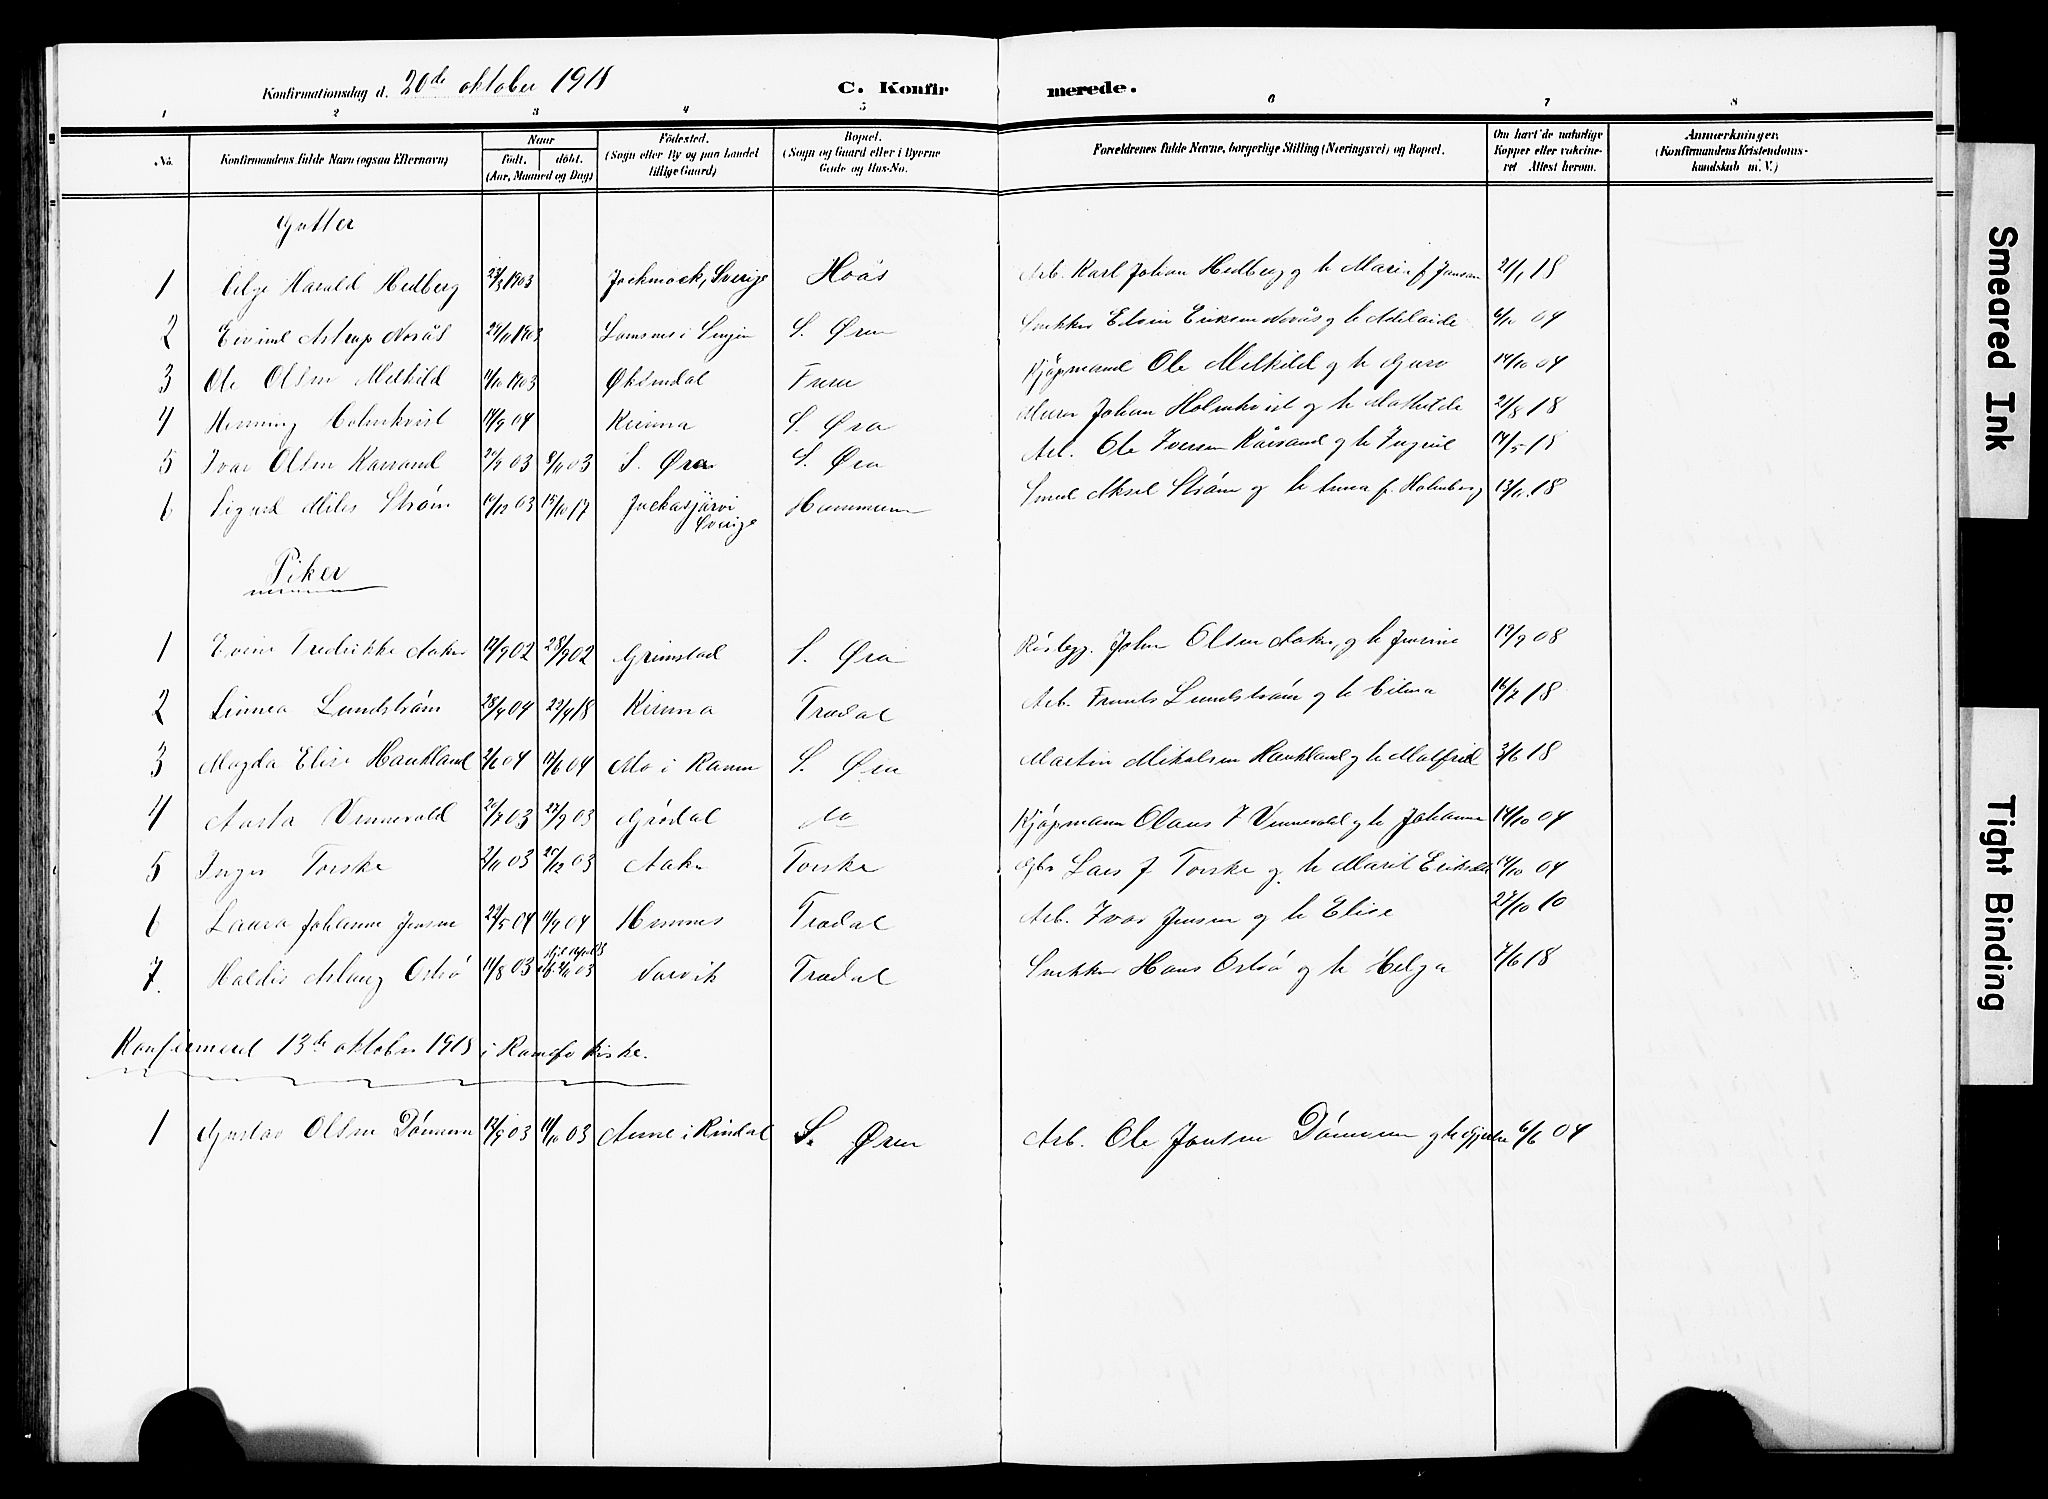 Konfirmationsdag d. 20de oktober 1918 C. Konfirmerede.
1 2 3 4 5 6 7 8
No. Konfirmandens fulde Navn (ogsaa Efternavn) Naar født. døbt. (Aar, Maaned og Dag) Fødested. (Sogn eller By og paa Landet tillige Gaard) Bopæl. (Sogn og Gaard eller i Byerne Gade og Hus-No. Forældrenes fulde Navne, borgerlige Stilling (Næringsvei) og Bopæl. Om havt de naturlige Kopper eller vakcineret Attest herom. Anmærkninger. (Konfirmandens Kristendomskundskab m. V.)
Gutter
1 Helge Harald Hedberg 1903 Jockmock, Sverige Hoås Arb. Karl Johan Hedberg og h Maria f. Jansson 21/1 18
2 Eivind Astrup Norås 24/11 1903 S. Øren Snekker Edvin Eriksen Norås og h Adelaide 04
3 Ole Olsen Melkild 11/10 1903 Øksendal Furu Kjøpmand Ole Melkild og h Guro 14/10 04
4 Henning Holmkvist 14/9 04 Kiruna S. Øra Murer Johan Holmkvist og h Mathilde 21/8 18
5 Ivar Olsen Raasand 03 8/11 03 S. Øra S. Øra Arb. Ole Iversen Råssand og h Ingrid 14/5 18
6 Sigurd Strøm 10/12 03 15/10 17 Juckasjärvi Sverige Hammeren Smed Aksel Strøm og h Anna f. Holmberg 13/11 18
Piker
1 Fredrikke Aaker 12/9 02 28/9 02 Grimstad S. Øra Rørlegg. Johan Olsen Aaker, og h 19/9 08
2 Linnea Lundstrøm 28/4 04 22/9 18 Kiruna Trædal Arb. Frants Lundstrøm og h Hilma 16/7 18
3 Magda Elise Haukland 2/6 04 12/6 04 Mo i Ranen S. Øra Martin Mikalsen Haukland og h Malfrid 3/6 18
4 Aasta Vennevold 20/7 03 27/9 03 Grødal do Kjøpmann Olaus J Vennevold og h Johanna 14/10 04
5 Inger Torske 2/11 03 20/12 03 Aaker Torske Gbr Lars J Torske og h Marit Eriksdtr 14/10 04
6 Laura Johanne Jensen 22/5 04 11/9 04 Hemnes Trædal Arb. Ivar Jensen og h Elise 27/10 10
7. Haldis Aslaug Ostrø 11/8 03 03 Narvik Trædal Snekker Hans Ostrø og h Helga 7/6 18
Konfirmeret 13de oktober 1918 i Romfo kirke.
1 Gustav Olsen Dønnem 12/9 03 11/10 03 Aune i Rindal S. Øren Arb. Ole Jonsen Dønnem og h Gjertru 6/6 04
Smeared Ink
Tight Binding